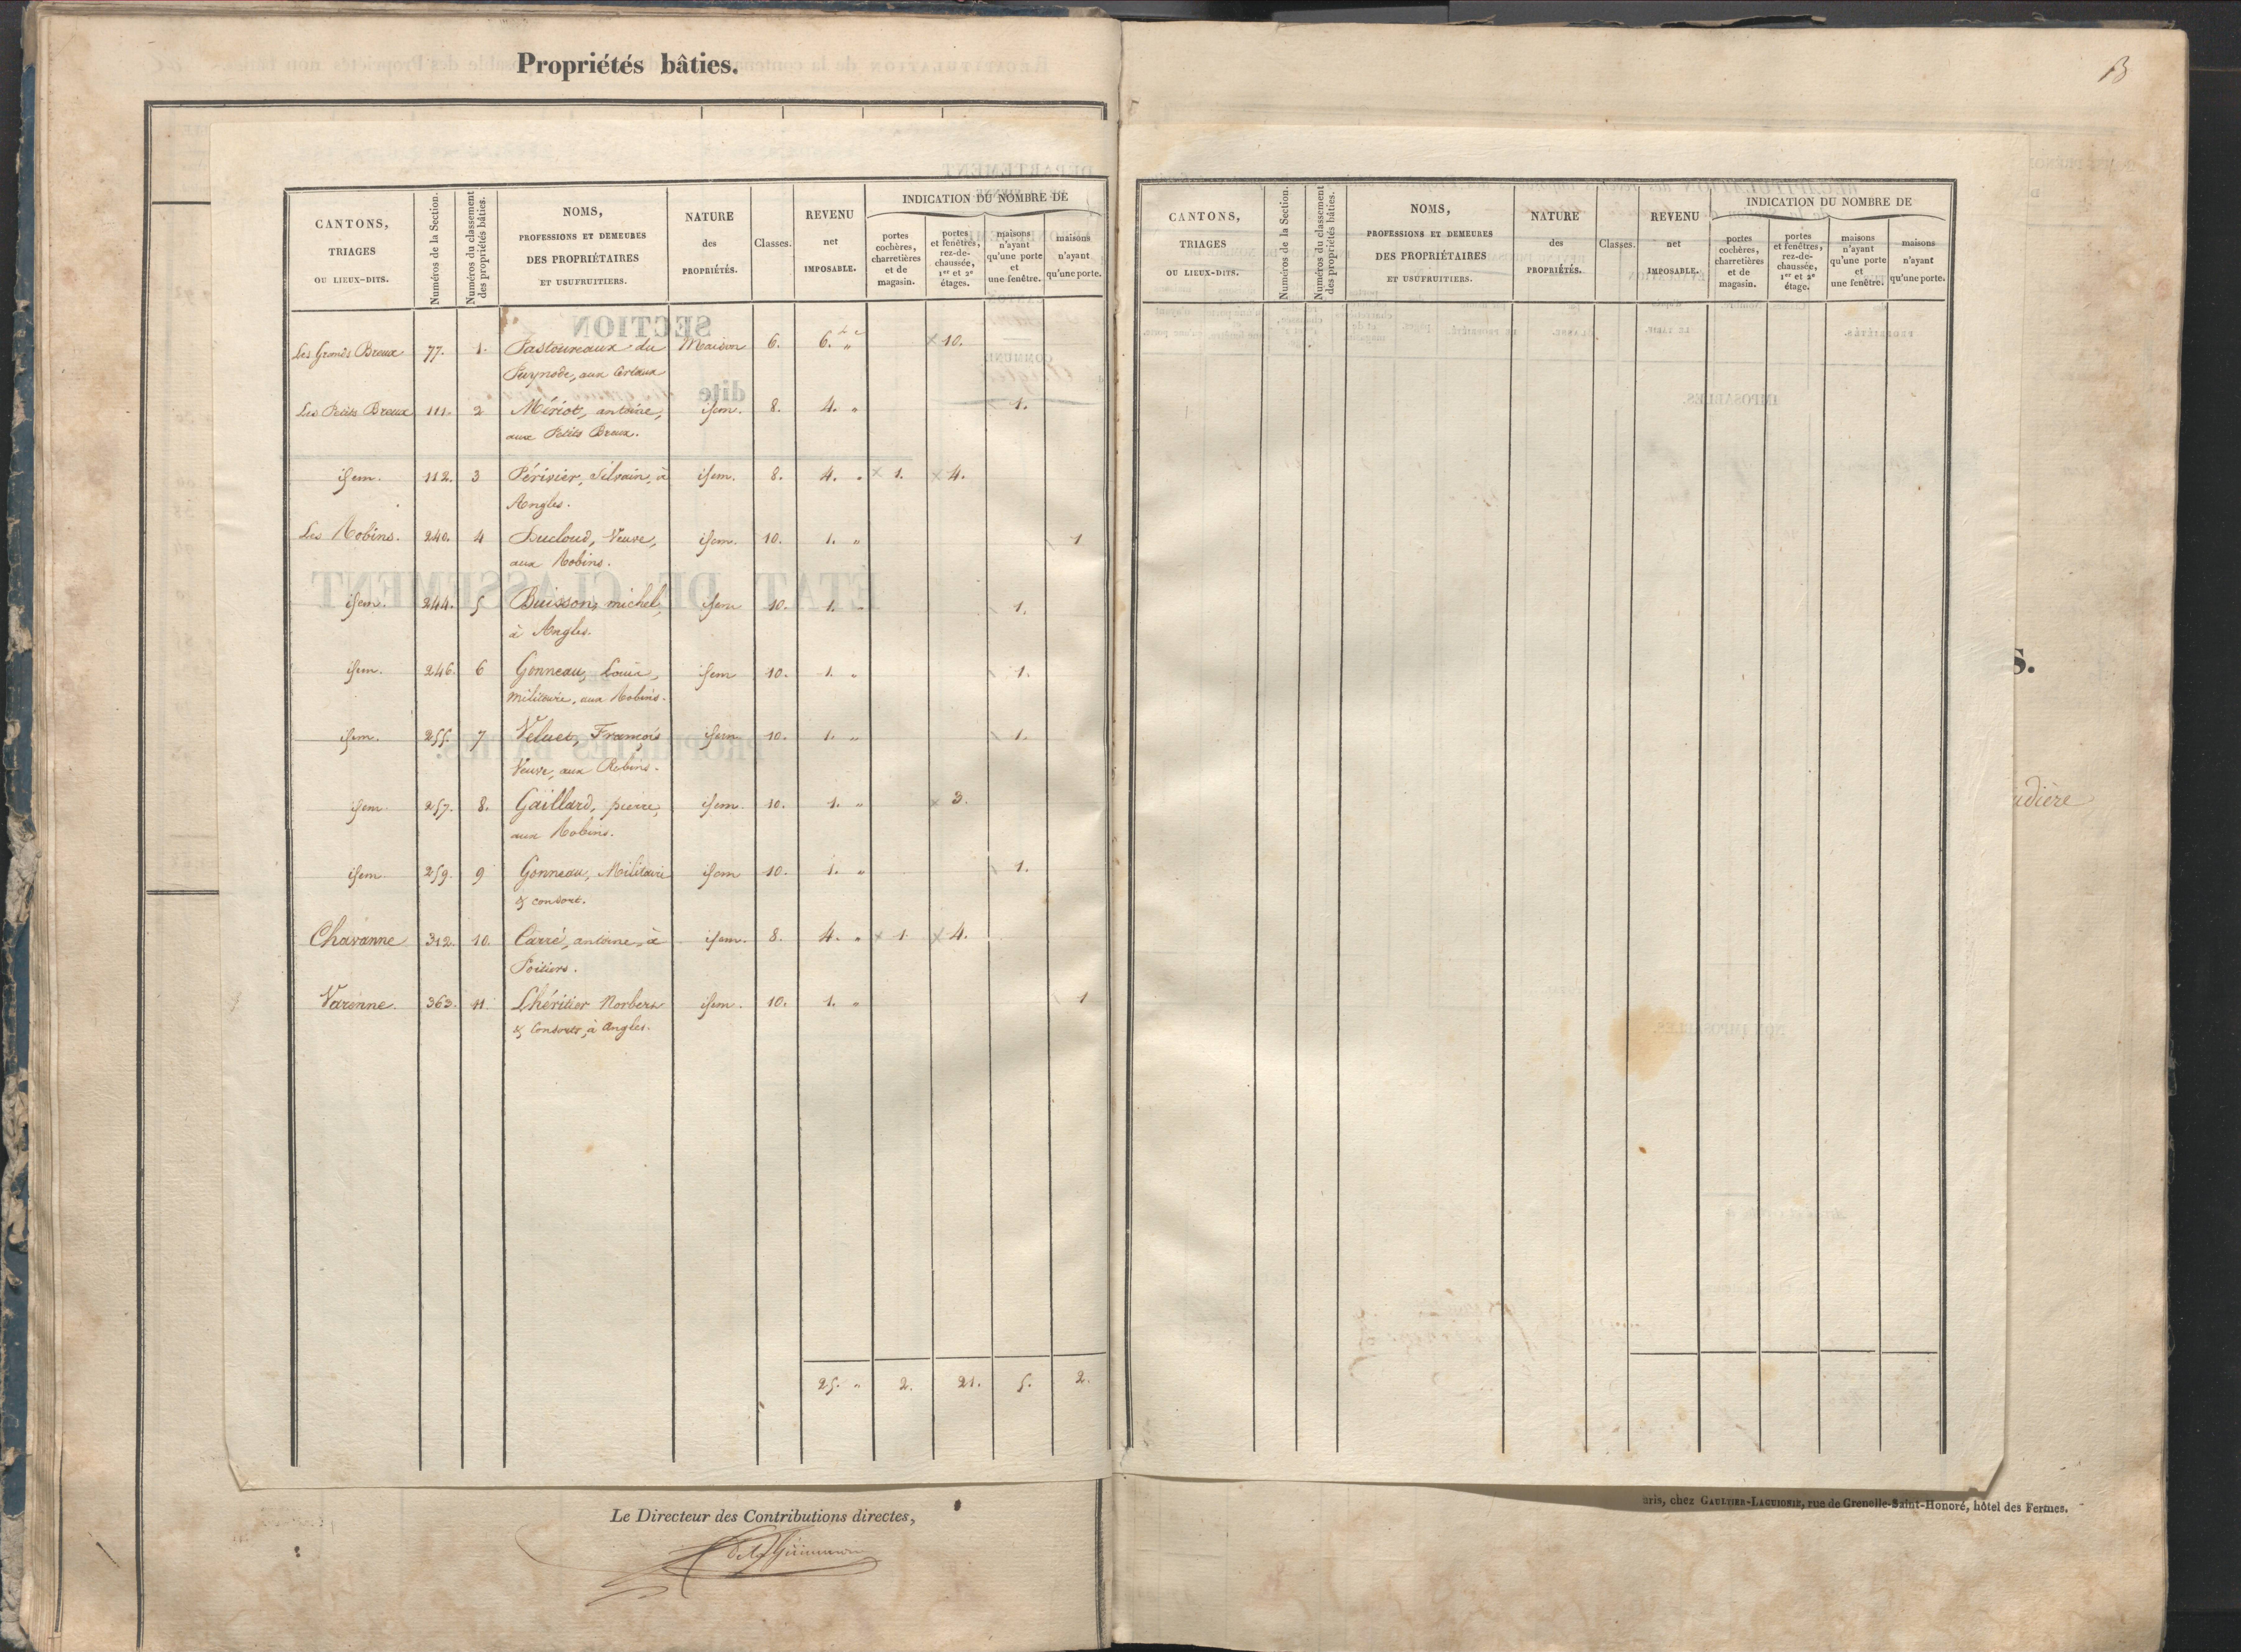 Propriétés bâties.
CANTONS, TRIAGES OU LIEUX-DITS.
Numéros de la Section.
Numéros du classement des propriétés bâties.
NOMS, PROFESSIONS ET DEMEURES DES PROPRIÉTAIRES ET USUFRUITIERS.
NATURE des PROPRIÉTÉS.
Classes.
REVENU net IMPOSABLE.
INDICATION DU NOMBRE DE
portes cochères, charretières et de magasin.
portes et fenêtres, rez-de-chaussée, 1er et 2e étages.
maisons n'ayant qu'une porte et une fenêtre.
maisons n'ayant qu'une porte.
Les Grands Breux 77. 1. Pastoureaux du Maison 6. 6. " × 10.
Puynode, aux
Les Petits Breux 111. 2 Mériot, antoine, isem. 8. 4. " 1.
aux Petits Breux.
isem. 112. 3 Périvier, Silvain, à isem. 8. 4. " × 1. × 4.
Angles.
Les Robins. 240. 4 Ducloud, Veuve, isem. 10. 1. " 1
aux Robins.
isem. 244. 5 Buisson, michel, isem 10. 1. " 1.
à Angles.
isem. 246. 6 Gonneau, Louis, isem 10. 1. " 1.
militaire, aux Robins.
isem. 255. 7 Veluet, François isem 10. 1. " 1.
Veuve, aux Robins.
isem 257. 8. Gaillard, pierre, isem. 10. 1. " × 3.
aux Robins.
isem. 259. 9 Gonneau, Militaire isem 10. 1. " 1.
& consort.
Chavanne 312. 10. Carré, antoine, à isem. 8. 4. " × 1. × 4.
Poitiers.
Varenne. 363. 11. Lhéritier Norbert isem. 10. 1. " 1
& Consorts, à Angles.
25. " 2. 21. 5. 2.
Le Directeur des Contributions directes,
B
CANTONS, TRIAGES OU LIEUX-DITS.
Numéros de la Section.
Numéros du classement des propriétés bâties.
NOMS, PROFESSIONS ET DEMEURES DES PROPRIÉTAIRES ET USUFRUITIERS.
NATURE des PROPRIÉTÉS.
Classes.
REVENU net IMPOSABLE.
INDICATION DU NOMBRE DE
portes cochères, charretières et de magasin.
portes et fenêtres, rez-de-chaussée, 1er et 2e étage.
maisons n'ayant qu'une porte et une fenêtre.
maisons n'ayant qu'une porte.
S.
udière
aris, chez GAULTIER-LAGUIONIE, rue de Grenelle-Saint-Honoré, hôtel des Fermes.